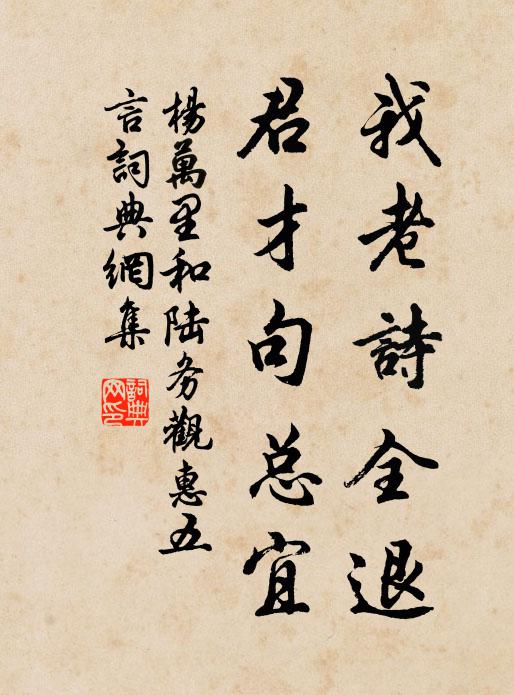 我老詩全退
君才句总宜
楊萬里和陆务觀惠五
言詞典網集
詞典
网印